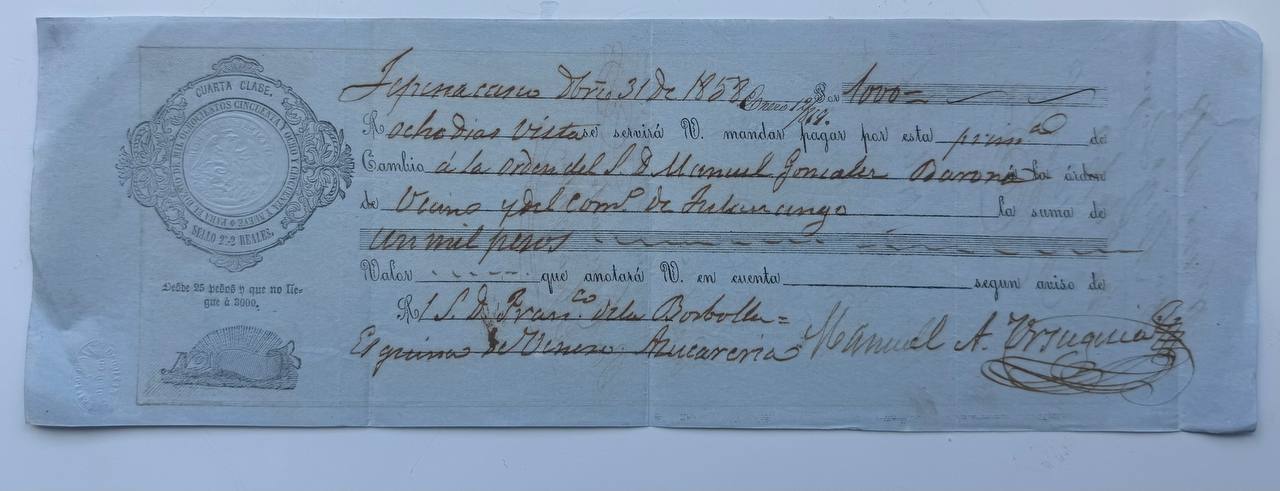 CUARTA CLASE.
PARA EL BIENIO DE MIL OCHOCIENTOS CINCUENTA Y OCHO Y CINCUENTA Y NUEVE
SELLO 2º. 2 REALES.
Desde 25 pesos y que no lle-
gue á 3000.
Dbre 31 de 1858 Enero Por 1000 =
A ocho dias vista se servirá V. mandar pagar por esta prim.ª de
Cambio á la orden del S. D. Manuel Gonzalez á la órden
de Vecino y del Com.º de Tulancingo la suma de
Un mil pesos
Valor que anotará V. en cuenta segun aviso de
Al S. D. Fran.co de la Borbolla =
Esquina de Azucareria Manuel A.